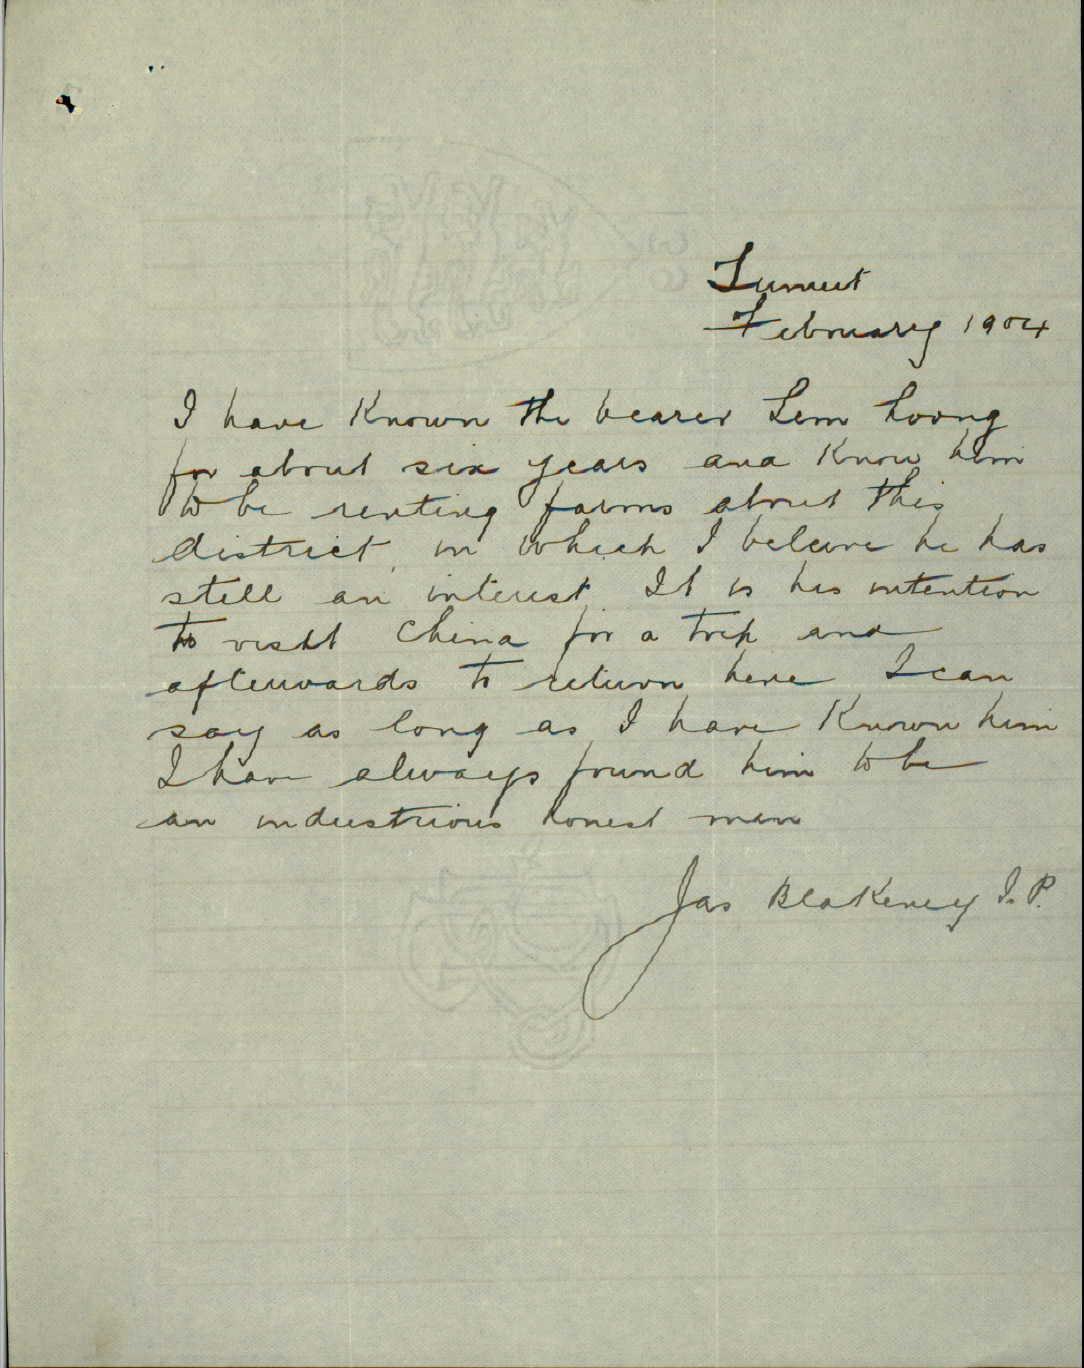 February 1904
I have Known the bearer Lem Loong
for about six years and Know him
to be renting farms about this
district, in which I beleive he has
still an interest. It is his intention
to visit China for a trip and
afterwards to return here I can
say as long as I have Known him
I have always found him to be
an industrious honest man
Jas Blakeney J.P.